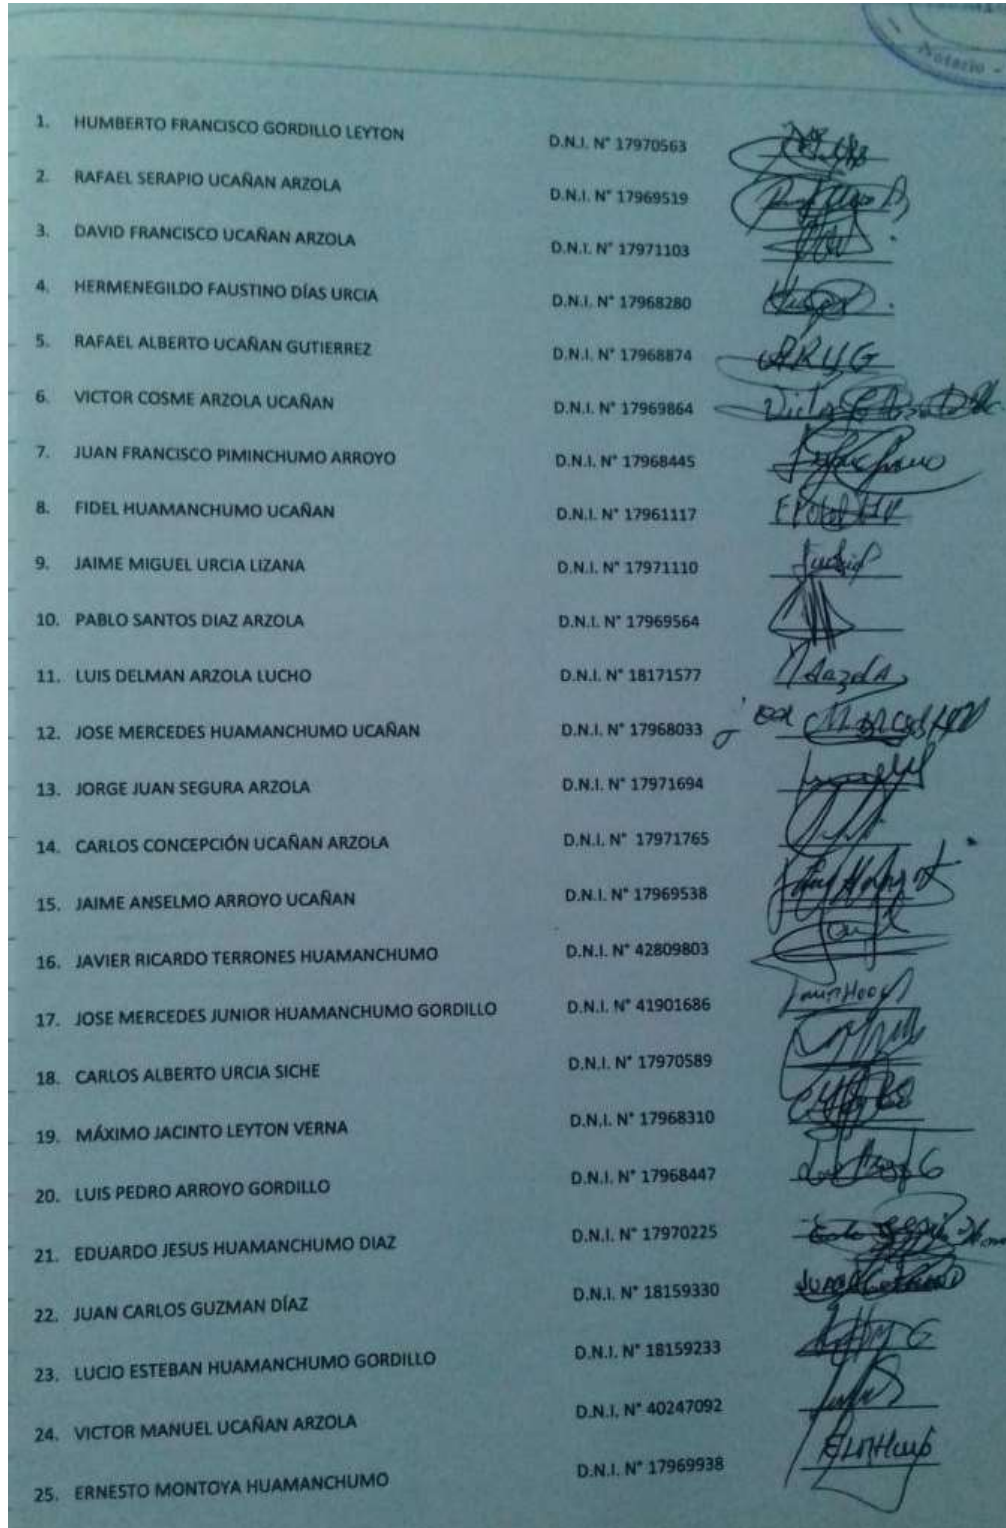 Notario -
1. HUMBERTO FRANCISCO GORDILLO LEYTON D.N.I. N° 17970563
2. RAFAEL SERAPIO UCAÑAN ARZOLA D.N.I. N° 17969519
3. DAVID FRANCISCO UCAÑAN ARZOLA D.N.I. N° 17971103
4. HERMENEGILDO FAUSTINO DÍAS URCIA D.N.I. N° 17968280
5. RAFAEL ALBERTO UCAÑAN GUTIERREZ D.N.I. N° 17968874 ARUG
6. VICTOR COSME ARZOLA UCAÑAN D.N.I. N° 17969864
7. JUAN FRANCISCO PIMINCHUMO ARROYO D.N.I. N° 17968445
8. FIDEL HUAMANCHUMO UCAÑAN D.N.I. N° 17961117
9. JAIME MIGUEL URCIA LIZANA D.N.I. N° 17971110
10. PABLO SANTOS DIAZ ARZOLA D.N.I. N° 17969564
11. LUIS DELMAN ARZOLA LUCHO D.N.I. N° 18171577
12. JOSE MERCEDES HUAMANCHUMO UCAÑAN D.N.I. N° 17968033
13. JORGE JUAN SEGURA ARZOLA D.N.I. N° 17971694
14. CARLOS CONCEPCIÓN UCAÑAN ARZOLA D.N.I. N° 17971765
15. JAIME ANSELMO ARROYO UCAÑAN D.N.I. N° 17969538
16. JAVIER RICARDO TERRONES HUAMANCHUMO D.N.I. N° 42809803
17. JOSE MERCEDES JUNIOR HUAMANCHUMO GORDILLO D.N.I. N° 41901686
18. CARLOS ALBERTO URCIA SICHE D.N.I. N° 17970589
19. MÁXIMO JACINTO LEYTON VERNA D.N.I. N° 17968310
20. LUIS PEDRO ARROYO GORDILLO D.N.I. N° 17968447
21. EDUARDO JESUS HUAMANCHUMO DIAZ D.N.I. N° 17970225
22. JUAN CARLOS GUZMAN DÍAZ D.N.I. N° 18159330
23. LUCIO ESTEBAN HUAMANCHUMO GORDILLO D.N.I. N° 18159233
24. VICTOR MANUEL UCAÑAN ARZOLA D.N.I. N° 40247092
25. ERNESTO MONTOYA HUAMANCHUMO D.N.I. N° 17969938